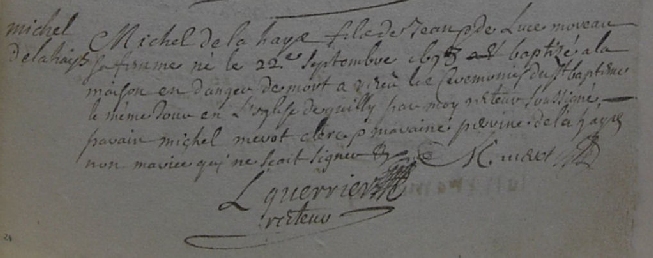 michel
delahaye
Michel de la haye fils de Jean & de Luce moreau
sa femme né le 22e Septembre 1695 a été baptizé a la
maison en danger de mort a receu les Ceremonies du St baptesme
le même Jour en L'eglise de quilly par moy recteur soussigné
parain michel meret clerc & maraine perrine de la haye
non mariée qui ne scait signer M meret
L guerrier
recteur